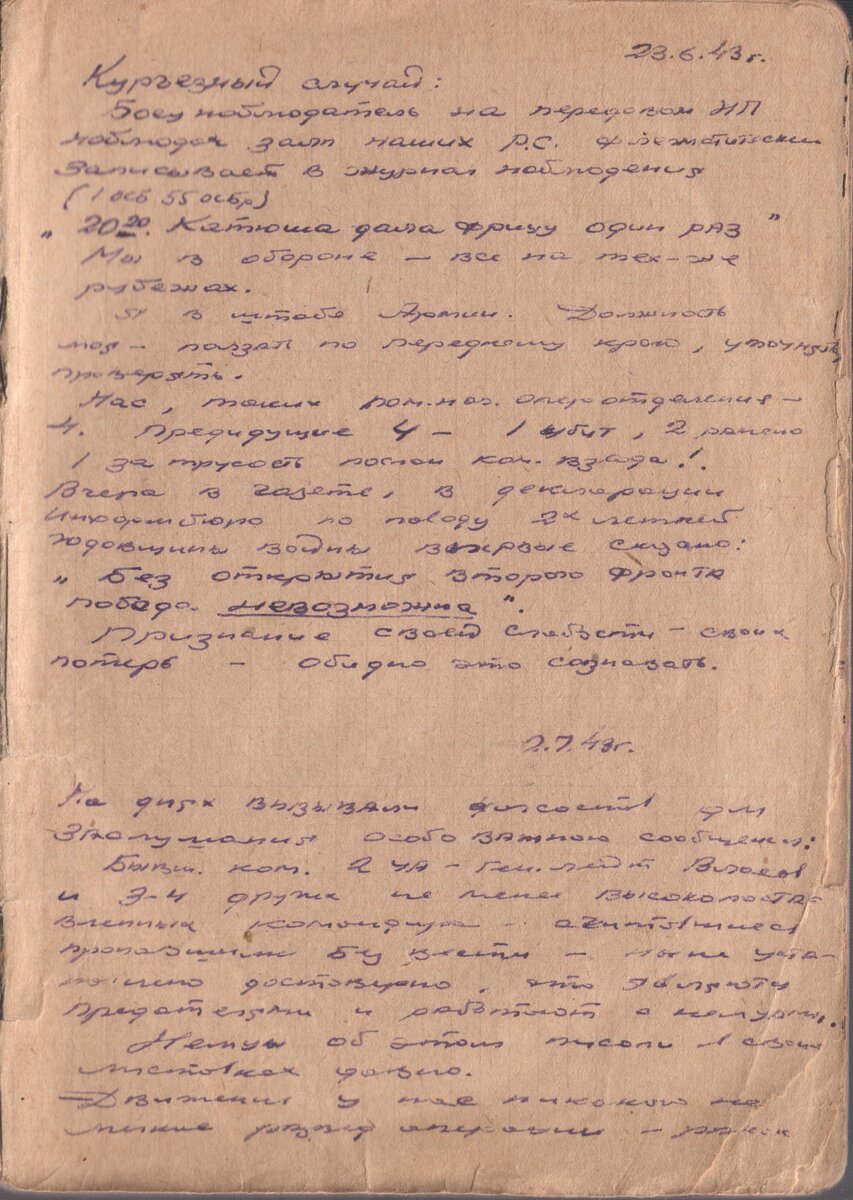 23.6.43г.
Курьезный случай:
Боец наблюдатель на передовом НП
наблюдая залп наших Р.С. флегматически
записывает в журнал наблюдения
(1 осб 55 осбр)
„20 20. Катюша дала фрицу один раз"
Мы в обороне – все на тех-же
рубежах.
Я в штабе Армии. Должность
моя – ползать по переднему краю, уточнять,
проверять.
Нас, таких пом. нач. оперотделения –
4. Предидущие 4 – 1 убит, 2 ранено
1 за трусость послан ком. взвода!.
Вчера в газете, в декларации
Информбюро по поводу 2х летней
годовщины войны впервые сказано:
„Без открытия второго фронта
победа невозможна".
Признание своей слабости – своих
потерь – Обидно это сознавать.
2.7.43г.
На днях вызывали для
заслушания особо важного сообщения:
Бывш. ком. 2 УА – Ген. лейт Власов
и 3-4 других не менее высокопостав-
вленных командира – считавшиеся
пропавшими без вести – ныне уста-
новлено достоверно, что являются
предателями и работают с немцами.
Немцы об этом писали в своих
листовках давно.
Движения у нас никакого не
мелкие развед операции – поиски